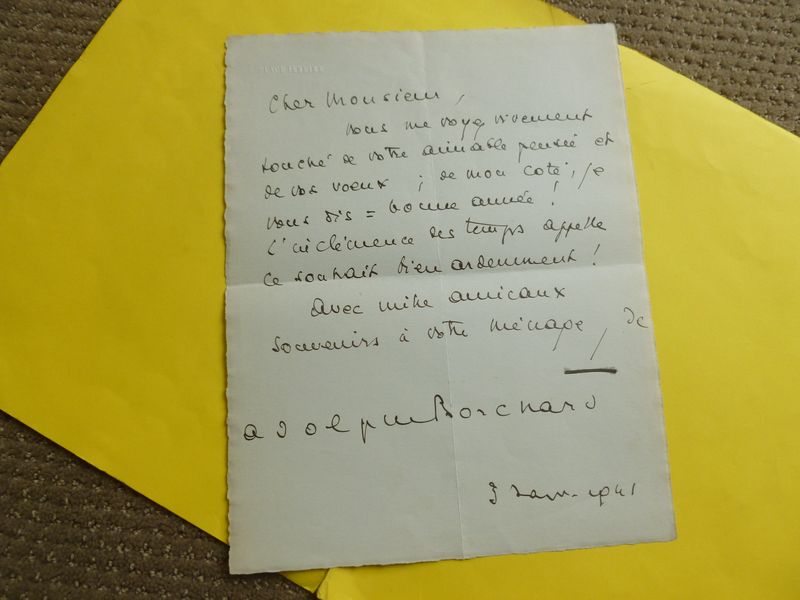 Cher Monsieur,
vous me voyez vivement
touché de votre aimable pensée et
de vos voeux ; de mon coté, je
vous dis = bonne année !
L'inclémence des temps appelle
ce souhait bien ardemment !
avec mille amicaux
souvenirs à votre ménage, de
adolphe Borchard
3 janv. 1941